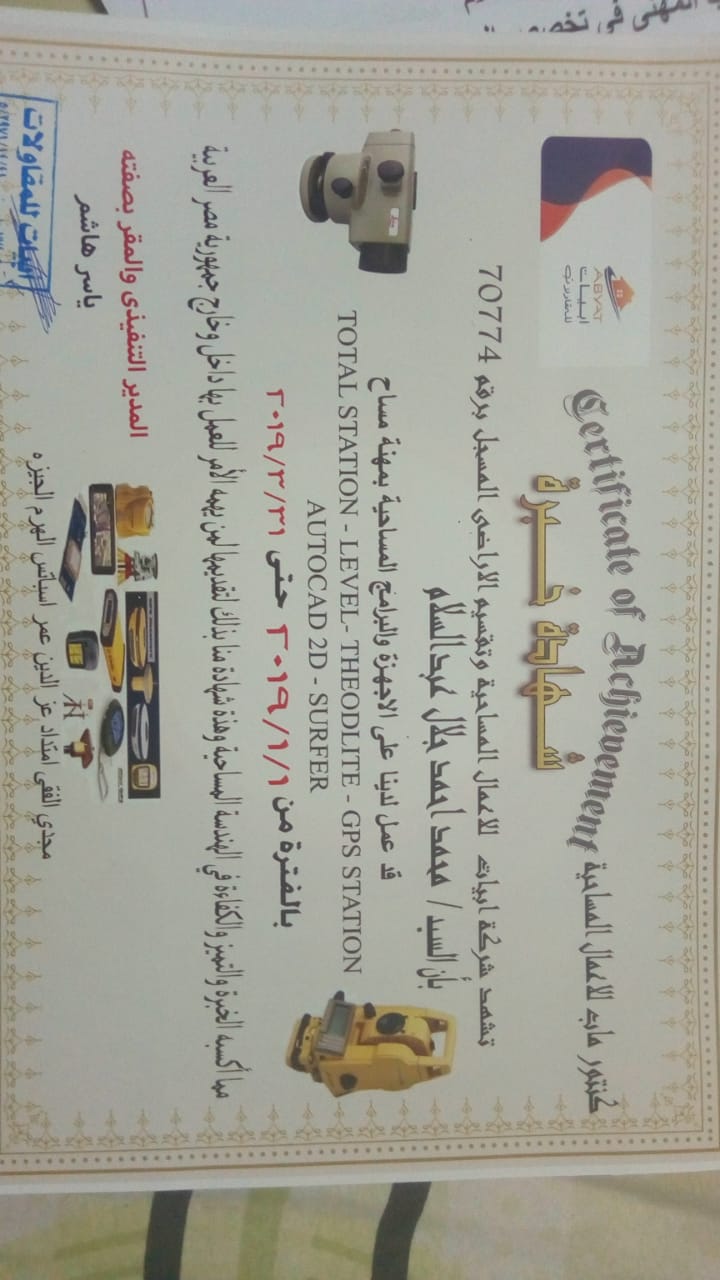 المهني في تخصص
ABYAT
ابيات
للتقارير
Certificate of Achievement
كنتور ماب للاعمال المساحية
شهادة خبرة
تشهد شركة ابيات للاعمال المساحية وتقسيم الاراضى المسجل برقم 70774
بأن السيد / محمد احمد جلال عبدالسلام
قد عمل لدينا على الاجهزة والبرامج المساحية بمهنة مساح
TOTAL STATION - LEVEL- THEODLITE - GPS STATION
AUTOCAD 2D - SURFER
بالفترة من ٢٠١٩/١/١ حتى ٢٠١٩/٣/٣١
مما أكسبه الخبرة والتميز والكفاءة في الهندسة المساحية وهذة شهادة منا بذلك لتقديمها لمن يهمه الأمر للعمل بها داخل وخارج جمهورية مصر العربية
المدير التنفيذى والمقر بصفته
ياسر هاشم
ابيات للمقاولات
مجدي الفقى امتداد عز الدين عمر اسباتس الهرم الجيزه